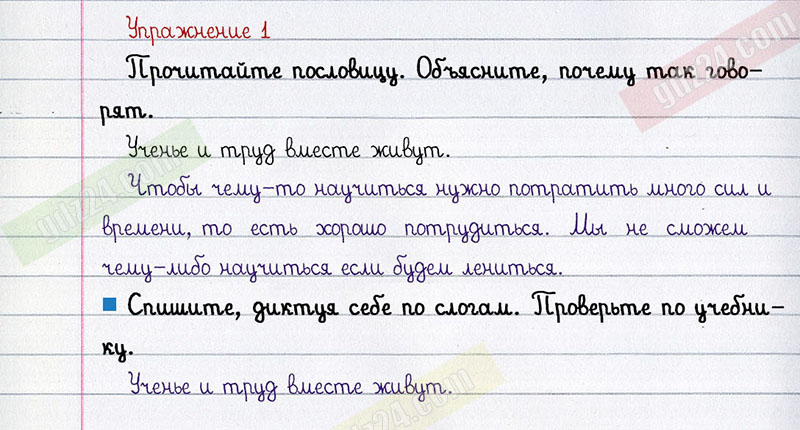 Упражнение 1
Прочитайте пословицу. Объясните, почему так гово-
рят.
Ученье и труд вместе живут.
Чтобы чему-то научиться нужно потратить много сил и
времени, то есть хорошо потрудиться. Мы не сможем
чему-либо научиться если будем лениться.
Спишите, диктуя себе по слогам. Проверьте по учебни-
ку.
Ученье и труд вместе живут.
gdz24.com
gdz24.com
gdz24.com